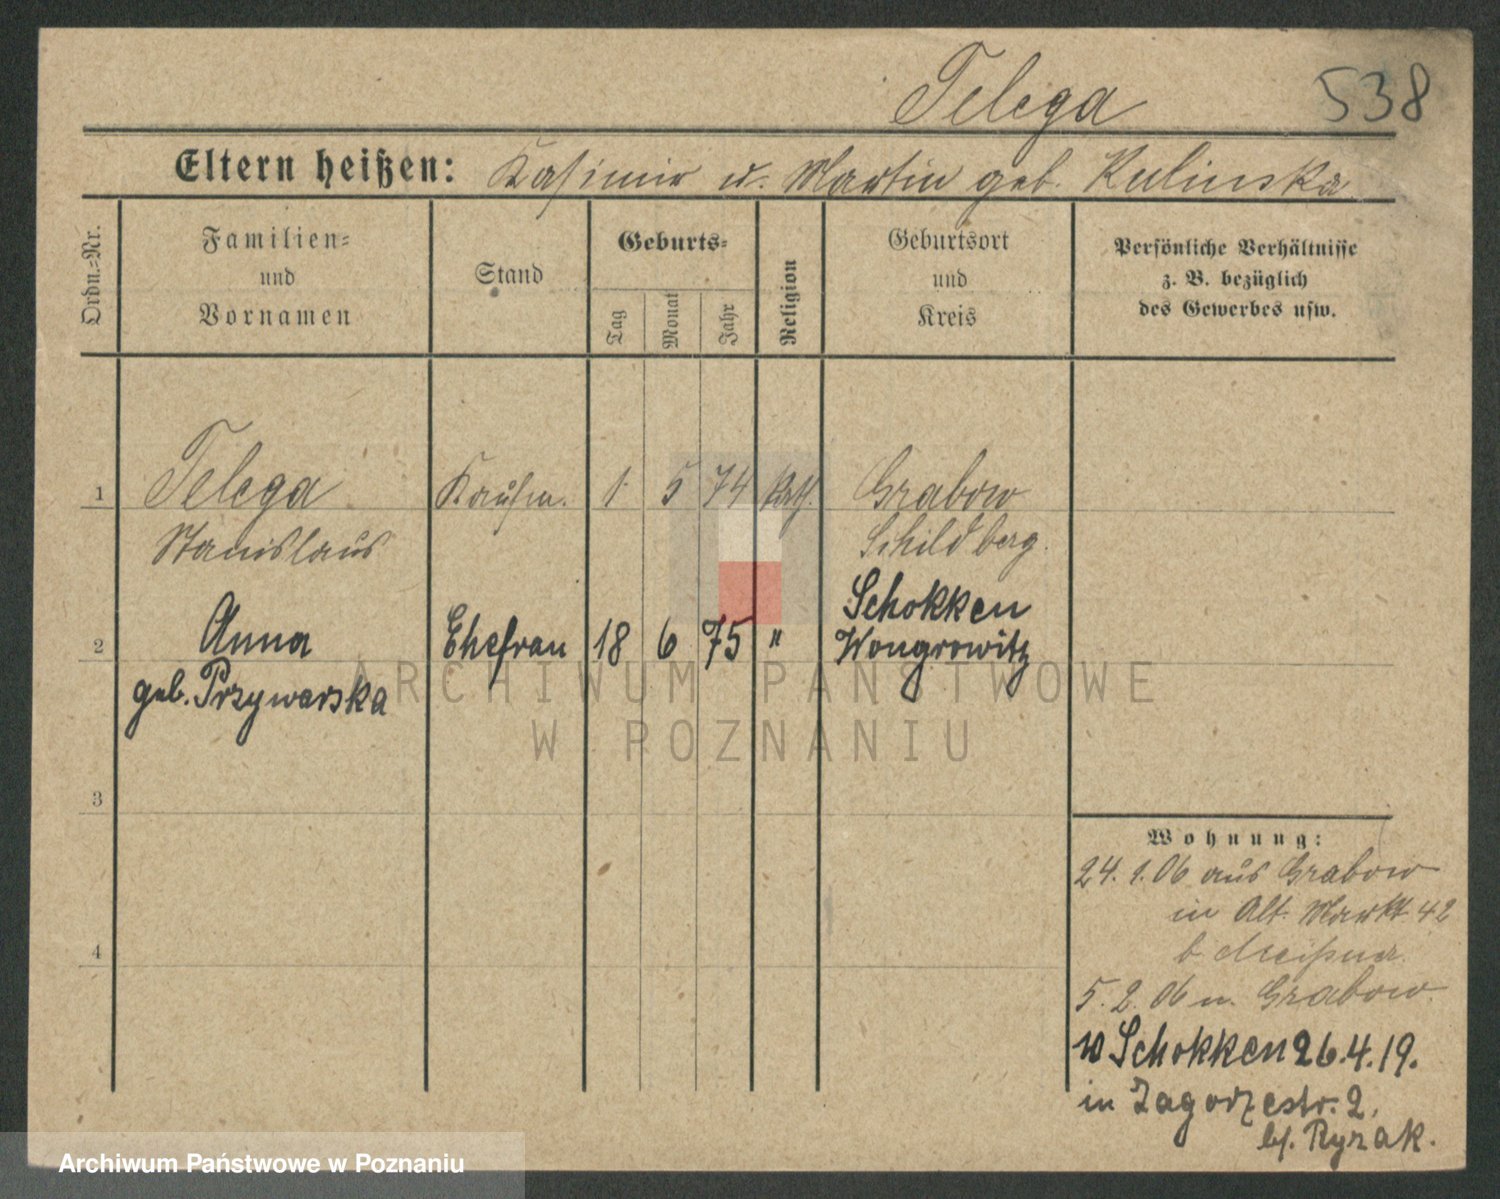 Telega 538
Eltern heißen: Kasimir u. Martin geb. Kulinska
Ordn.=Nr.
Familien=
und
Vornamen
Stand
Geburts=
Tag
Monat
Jahr
Religion
Geburtsort
und
Kreis
Persönliche Verhältnisse
z. B. bezüglich
des Gewerbes usw.
1 Telega Kaufm. 1. 5 74 kath. Grabow
Stanislaus Schildberg.
Schokken
2 Anna Ehefrau 18 6 75 " Wongrowitz
geb. Przywarska
3
4
Wohnung:
24. 1. 06 aus Grabow
in Alt. Markt 42
b. Meißner.
5. 2. 06 n. Grabow.
Schokken 26.4.19.
in Zagorzestr. 2.
bf. Ryzak.
ARCHIWUM PAŃSTWOWE
W POZNANIU
Archiwum Państwowe w Poznaniu